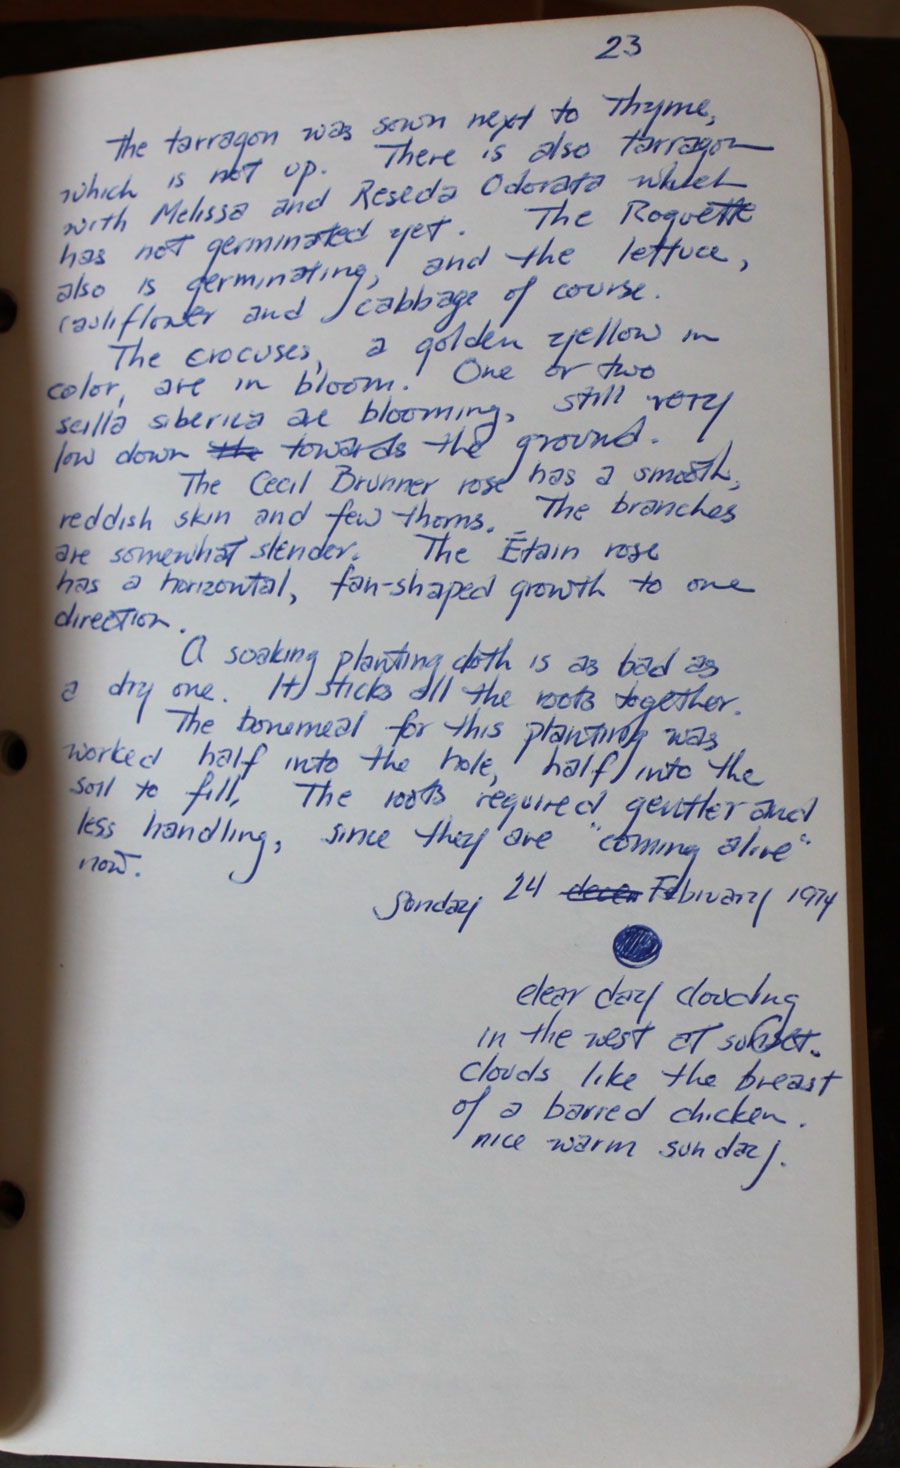 23
The tarragon was sown next to Thyme,
which is not up. There is also tarragon
with Melissa and Reseda Odorata which
has not germinated yet. The Roquette
also is germinating, and the lettuce,
cauliflower and cabbage of course.
The crocuses, a golden yellow in
color, are in bloom. One or two
scilla siberica are blooming, still very
low down the towards the ground.
The Cecil Brunner rose has a smooth,
reddish skin and few thorns. The branches
are somewhat slender. The Étain rose
has a horizontal, fan-shaped growth to one
direction.
A soaking planting cloth is as bad as
a dry one. It sticks all the roots together.
The bonemeal for this planting was
worked half into the hole, half into the
soil to fill. The roots required gentler and
less handling, since they are "coming alive"
now.
Sunday 24 decem February 1974
clear day clouding
in the west at sunset.
Clouds like the breast
of a barred chicken.
nice warm sunday.